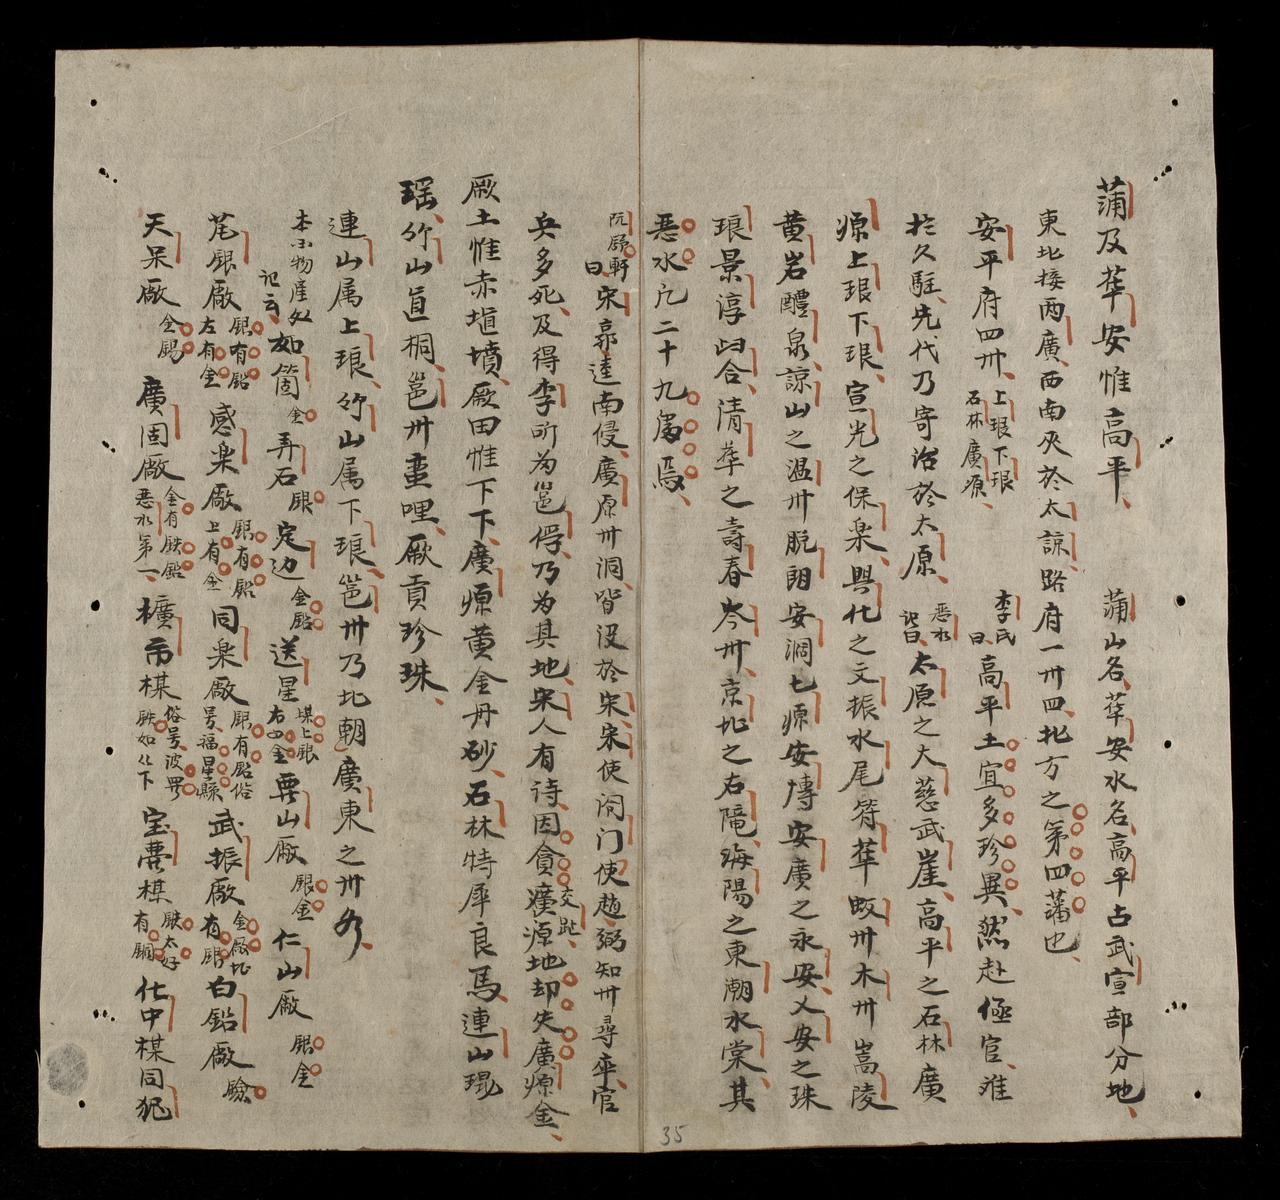 蒲及華安惟高平 蒲山名華安水名高平古武宣部分地
東北接两廣西南夾於太諒路府一卅四北方之第四藩也
安平府四卅 上琅下琅石林廣源 李氏曰高平土宜多珍異然赴極官难
於久駐先代乃寄治於太原 恶水記曰太原之大慈武崖高平之石林廣
源上琅下琅宣光之保樂興化之文振水尾符華 卅木卅嵩陵
黄岩醴泉諒山之温卅脱朗安澗七源安博安廣之永安乂安之珠
琅景淳歸合清華之壽春岑卅京北之右隴海陽之東潮水棠其
恶水凢二十九處焉
阮舒軒曰宋郭逵南侵廣原卅洞皆没於宋宋使問门使趙弼知卅尋卒官
兵多死及得李所为邕俘乃为其地宋人有詩因貪交趾 源地却失廣源金
厥土惟赤埴墳厥田惟下下廣源黄金丹砂石林特犀良馬連山琨
瑶竹山直桐邕卅蛮哩厥貢珍珠
連山属上琅竹山属下琅邕卅乃北朝廣東之卅名
本小物産处記云如箇金弄石銀定边金鉛送星 上銀右 金要山厰銀金仁山厰銀金
芘銀厰銀有鉛左有金感楽厰銀有鉛上有金同楽厰銀有鉛俗号福星縣武振厰金 有銀白鉛厰
天杲厰金錫廣固厰金有鉄鉛恶水第一櫎帋楳俗号波 鉄如 下宝要楳鉄太好有銅化中楳同犯
35